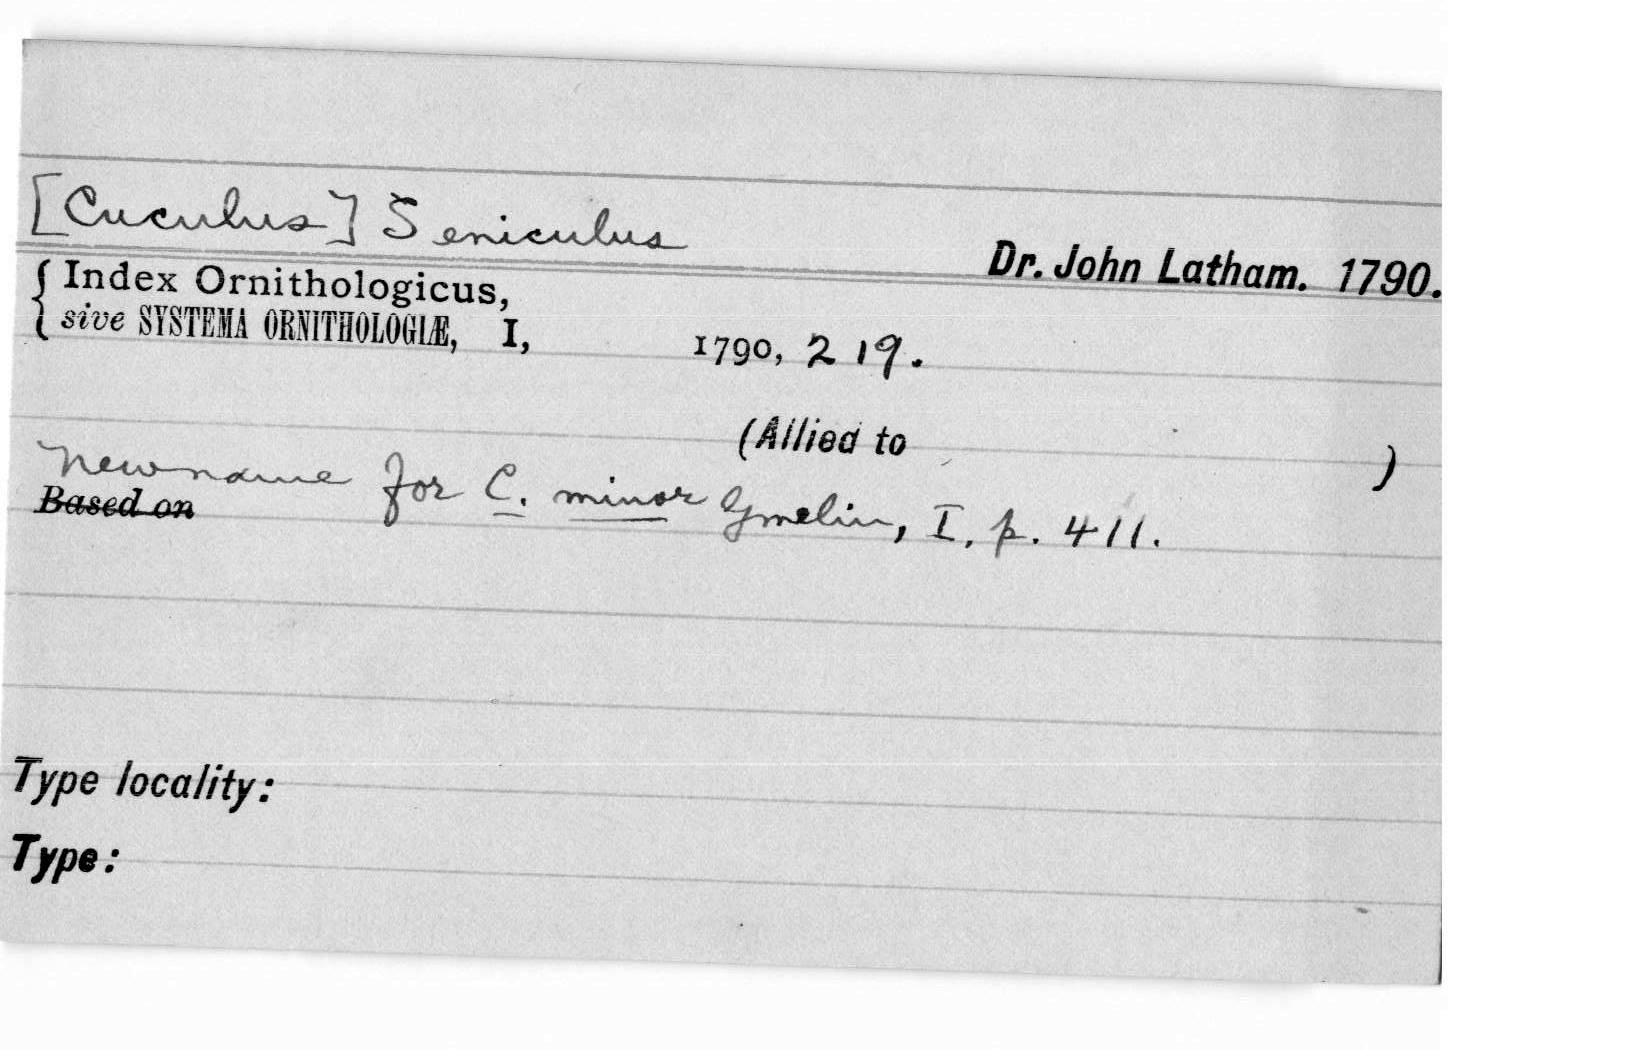 [Cuculus] Seniculus
Dr. John Latham. 1790.
{ Index Ornithologicus,
sive SYSTEMA ORNITHOLOGIÆ, I, 1790, 219.
(Allied to )
New name for C. minor Gmelin, I, p. 411.
Based on
Type locality:
Type: